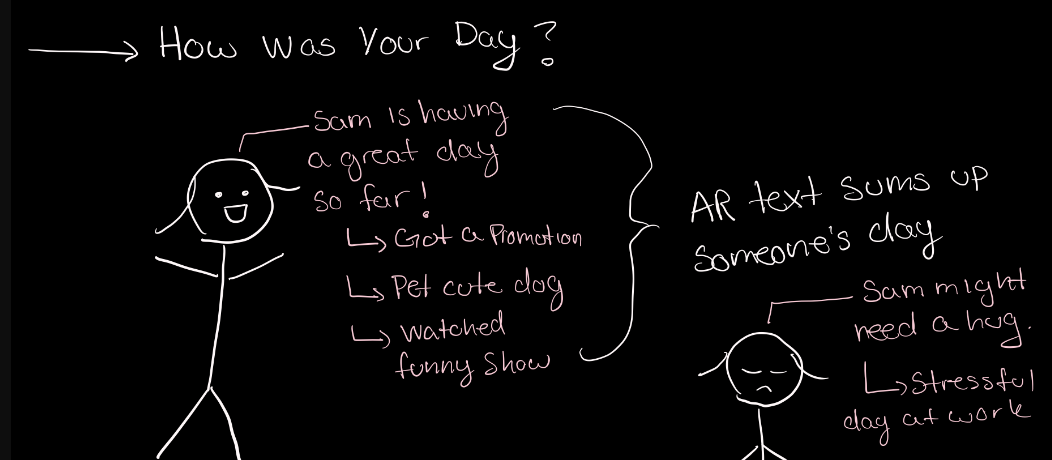 How Was Your Day?
Sam is having
a great day
so far!
Got a Promotion
Pet cute dog
watched
funny show
AR text sums up
someone's day
Sam might
need a hug.
Stressful
day at work